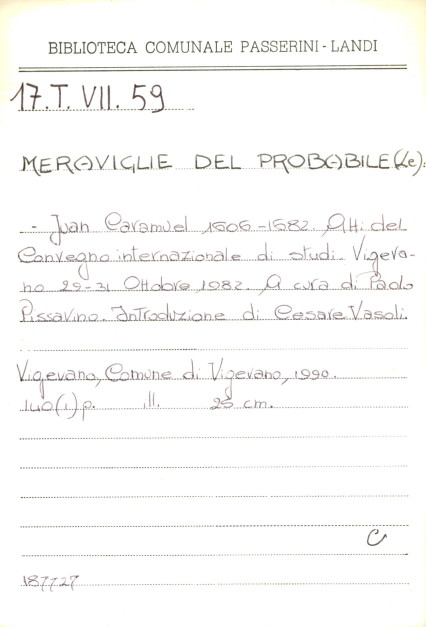 BIBLIOTECA COMUNALE PASSERINI-LANDI
17.T. VII. 59
MERAVIGLIE DEL PROBABILE (Le):
- Juan Caramuel 1606-1682. Atti del
Convegno internazionale di studi. Vigeva-
no 29-31 Ottobre 1982. A cura di Paolo
Pissavino. Introduzione di Cesare Vasoli.
Vigevano, Comune di Vigevano, 1990.
140(1)p. ill. 25 cm.
C
187727